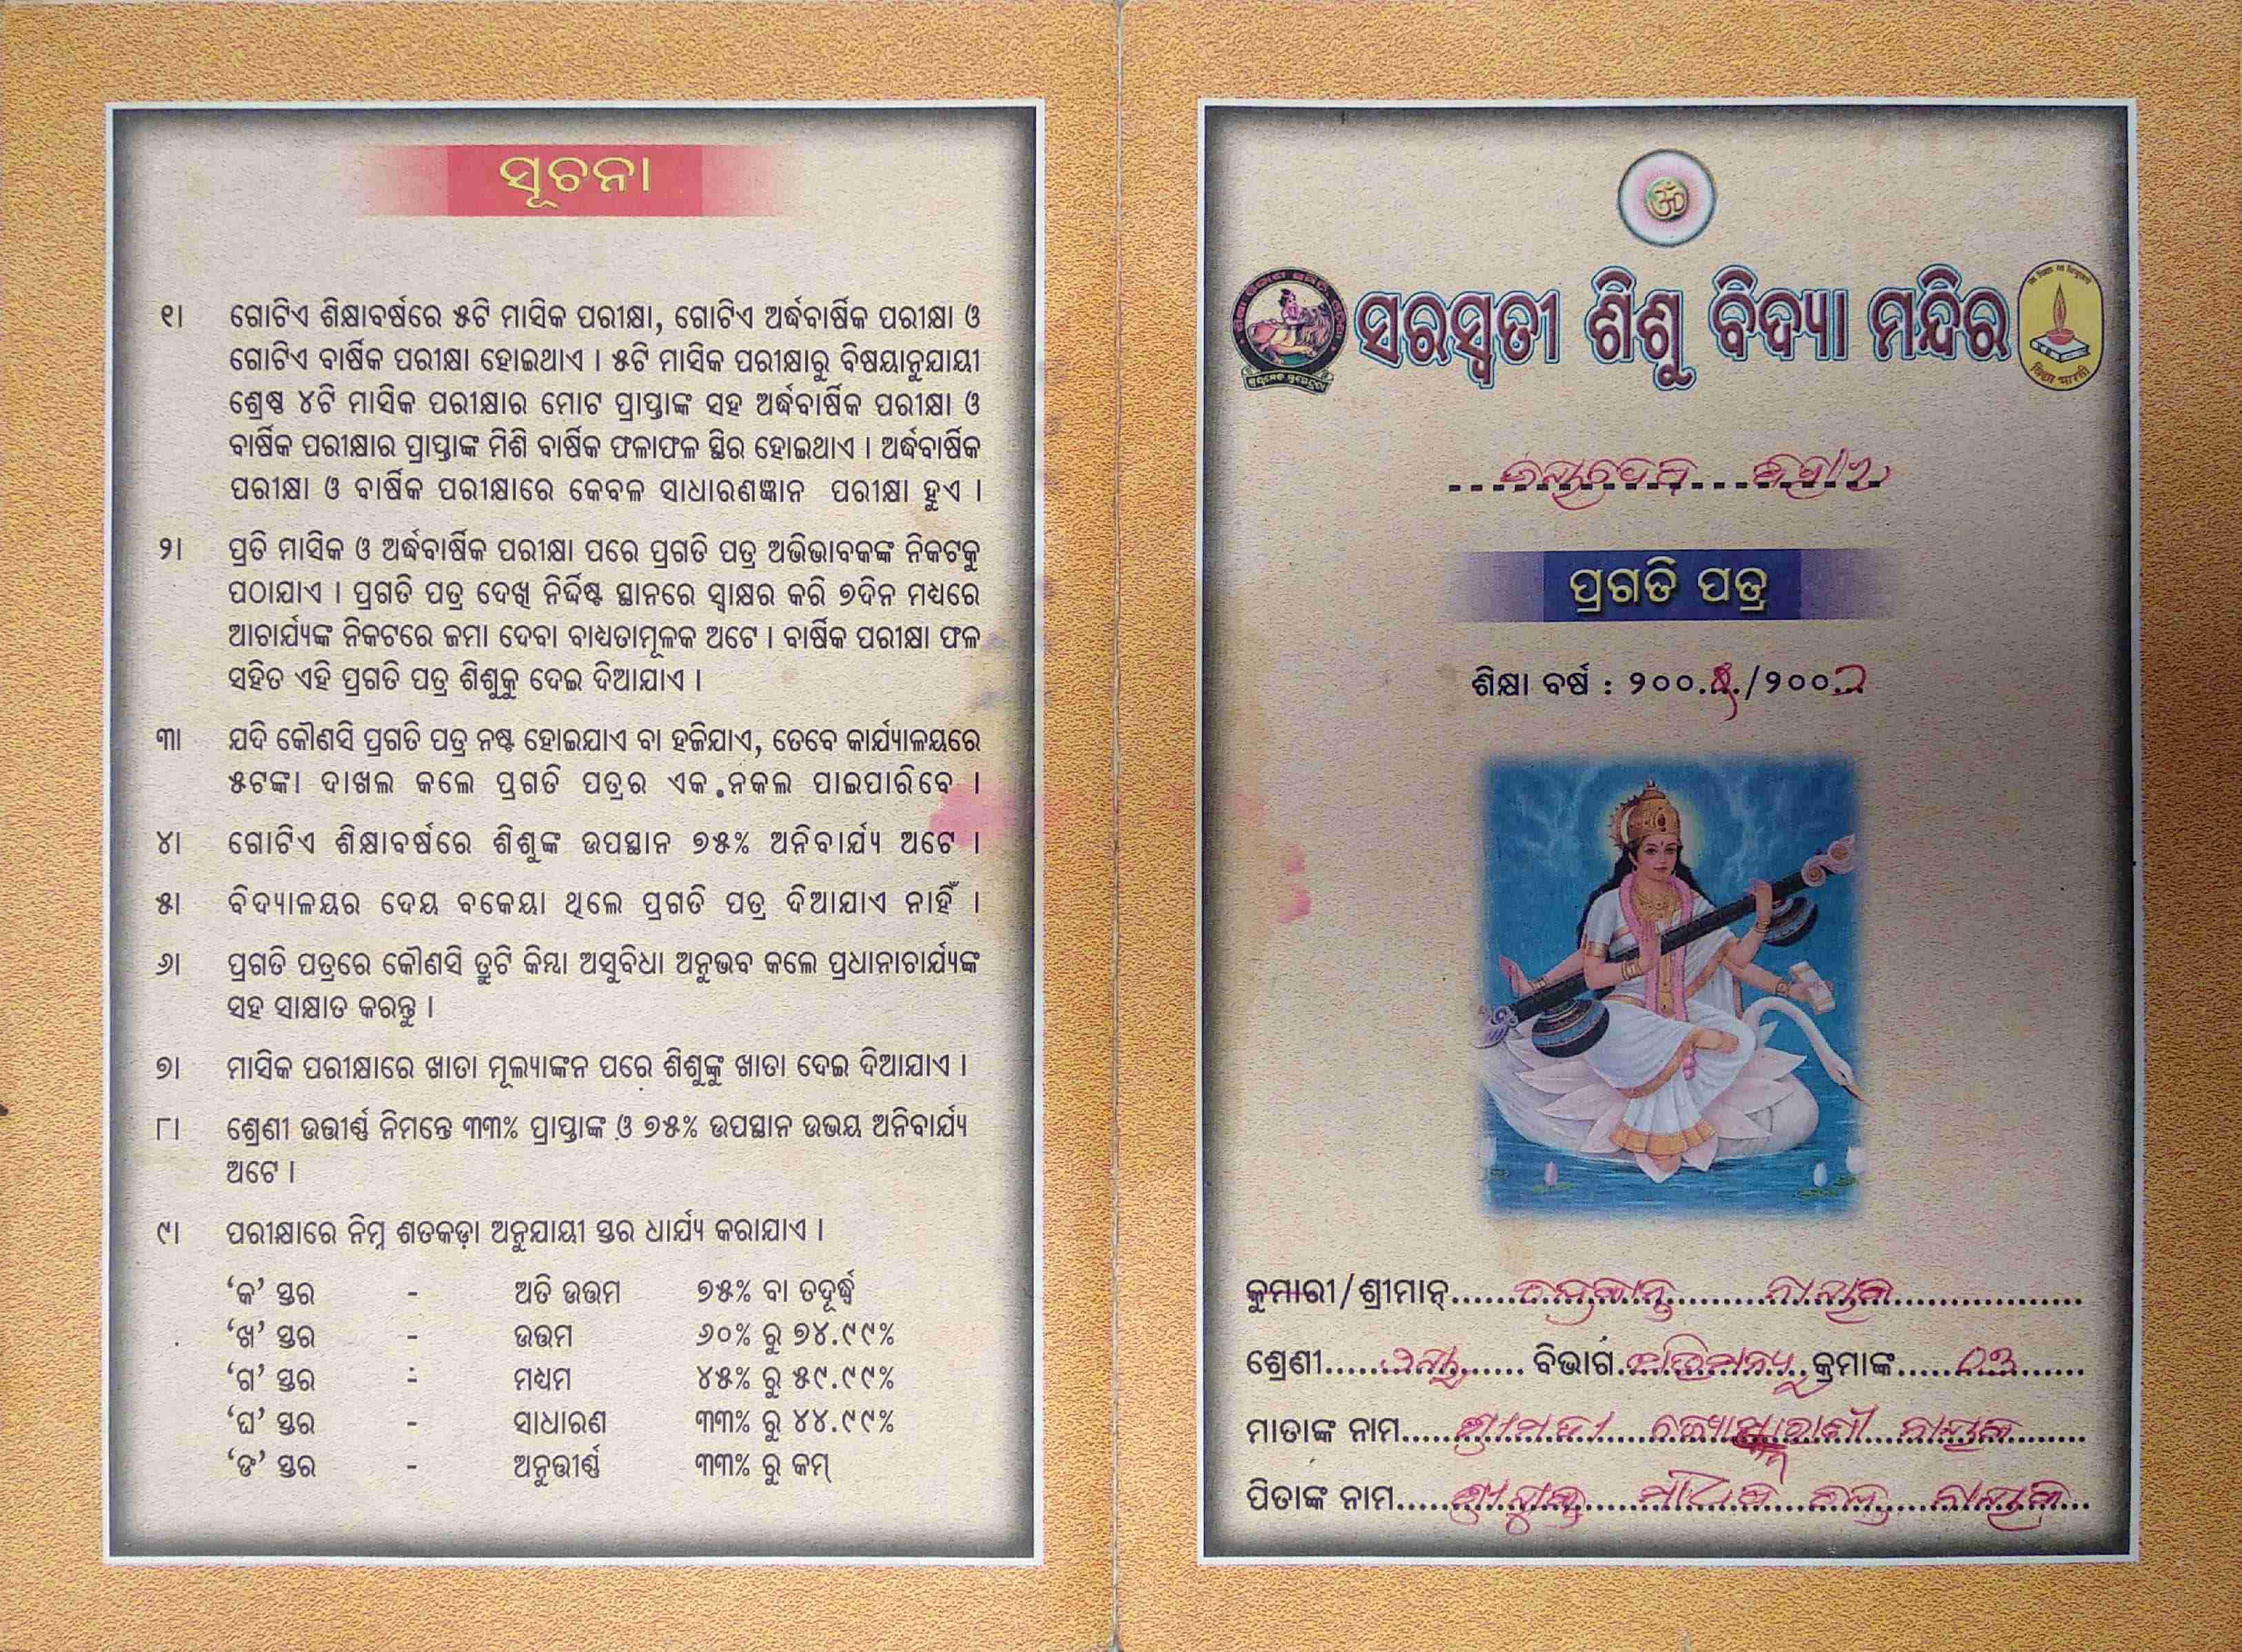 ସୂଚନା
୧। ଗୋଟିଏ ଶିକ୍ଷାବର୍ଷରେ ୫ଟି ମାସିକ ପରୀକ୍ଷା, ଗୋଟିଏ ଅର୍ଦ୍ଧବାର୍ଷିକ ପରୀକ୍ଷା ଓ
ଗୋଟିଏ ବାର୍ଷିକ ପରୀକ୍ଷା ହୋଇଥାଏ । ୫ଟି ମାସିକ ପରୀକ୍ଷାରୁ ବିଷୟାନୁଯାୟୀ
ଶ୍ରେଷ୍ଠ ୪ଟି ମାସିକ ପରୀକ୍ଷାର ମୋଟ ପ୍ରାପ୍ତାଙ୍କ ସହ ଅର୍ଦ୍ଧବାର୍ଷିକ ପରୀକ୍ଷା ଓ
ବାର୍ଷିକ ପରୀକ୍ଷାର ପ୍ରାପ୍ତାଙ୍କ ମିଶି ବାର୍ଷିକ ଫଳାଫଳ ସ୍ଥିର ହୋଇଥାଏ । ଅର୍ଦ୍ଧବାର୍ଷିକ
ପରୀକ୍ଷା ଓ ବାର୍ଷିକ ପରୀକ୍ଷାରେ କେବଳ ସାଧାରଣଜ୍ଞାନ ପରୀକ୍ଷା ହୁଏ ।
୨। ପ୍ରତି ମାସିକ ଓ ଅର୍ଦ୍ଧବାର୍ଷିକ ପରୀକ୍ଷା ପରେ ପ୍ରଗତି ପତ୍ର ଅଭିଭାବକଙ୍କ ନିକଟକୁ
ପଠାଯାଏ । ପ୍ରଗତି ପତ୍ର ଦେଖି ନିର୍ଦ୍ଦିଷ୍ଟ ସ୍ଥାନରେ ସ୍ୱାକ୍ଷର କରି ୭ଦିନ ମଧ୍ୟରେ
ଆଚାର୍ଯ୍ୟଙ୍କ ନିକଟରେ ଜମା ଦେବା ବାଧ୍ୟତାମୂଳକ ଅଟେ । ବାର୍ଷିକ ପରୀକ୍ଷା ଫଳ
ସହିତ ଏହି ପ୍ରଗତି ପତ୍ର ଶିଶୁକୁ ଦେଇ ଦିଆଯାଏ ।
୩। ଯଦି କୌଣସି ପ୍ରଗତି ପତ୍ର ନଷ୍ଟ ହୋଇଯାଏ ବା ହଜିଯାଏ, ତେବେ କାର୍ଯ୍ୟାଳୟରେ
୫ଟଙ୍କା ଦାଖଲ କଲେ ପ୍ରଗତି ପତ୍ରର ଏକ ନକଲ ପାଇପାରିବେ ।
୪। ଗୋଟିଏ ଶିକ୍ଷାବର୍ଷରେ ଶିଶୁଙ୍କ ଉପସ୍ଥାନ ୭୫% ଅନିବାର୍ଯ୍ୟ ଅଟେ ।
୫। ବିଦ୍ୟାଳୟର ଦେୟ ବକେୟା ଥିଲେ ପ୍ରଗତି ପତ୍ର ଦିଆଯାଏ ନାହିଁ ।
୬। ପ୍ରଗତି ପତ୍ରରେ କୌଣସି ତ୍ରୁଟି କିମ୍ବା ଅସୁବିଧା ଅନୁଭବ କଲେ ପ୍ରଧାନାଚାର୍ଯ୍ୟଙ୍କ
ସହ ସାକ୍ଷାତ କରନ୍ତୁ ।
୭। ମାସିକ ପରୀକ୍ଷାରେ ଖାତା ମୂଲ୍ୟାଙ୍କନ ପରେ ଶିଶୁଙ୍କୁ ଖାତା ଦେଇ ଦିଆଯାଏ ।
୮। ଶ୍ରେଣୀ ଉତ୍ତୀର୍ଣ୍ଣ ନିମନ୍ତେ ୩୩% ପ୍ରାପ୍ତାଙ୍କ ଓ ୭୫% ଉପସ୍ଥାନ ଉଭୟ ଅନିବାର୍ଯ୍ୟ
ଅଟେ ।
୯। ପରୀକ୍ଷାରେ ନିମ୍ନ ଶତକଡ଼ା ଅନୁଯାୟୀ ସ୍ତର ଧାର୍ଯ୍ୟ କରାଯାଏ ।
‘କ’ ସ୍ତର - ଅତି ଉତ୍ତମ ୭୫% ବା ତଦୂର୍ଦ୍ଧ୍ୱ
‘ଖ’ ସ୍ତର - ଉତ୍ତମ ୬୦% ରୁ ୭୪.୯୯%
‘ଗ’ ସ୍ତର - ମଧ୍ୟମ ୪୫% ରୁ ୫୯.୯୯%
‘ଘ’ ସ୍ତର - ସାଧାରଣ ୩୩% ରୁ ୪୪.୯୯%
‘ଙ’ ସ୍ତର - ଅନୁତ୍ତୀର୍ଣ୍ଣ ୩୩% ରୁ କମ୍
ॐ
ସରସ୍ୱତୀ ଶିଶୁ ବିଦ୍ୟା ମନ୍ଦିର
ପ୍ରଗତି ପତ୍ର
ଶିକ୍ଷା ବର୍ଷ : ୨୦୦.../୨୦୦...
କୁମାରୀ/ଶ୍ରୀମାନ୍ ଚନ୍ଦ୍ରକାନ୍ତ ନାୟକ
ଶ୍ରେଣୀ ବିଭାଗ ଅଭିମନ୍ୟୁ କ୍ରମାଙ୍କ
ମାତାଙ୍କ ନାମ ଶ୍ରୀମତୀ ନାୟକ
ପିତାଙ୍କ ନାମ ଶ୍ରୀଯୁକ୍ତ ନାୟକ